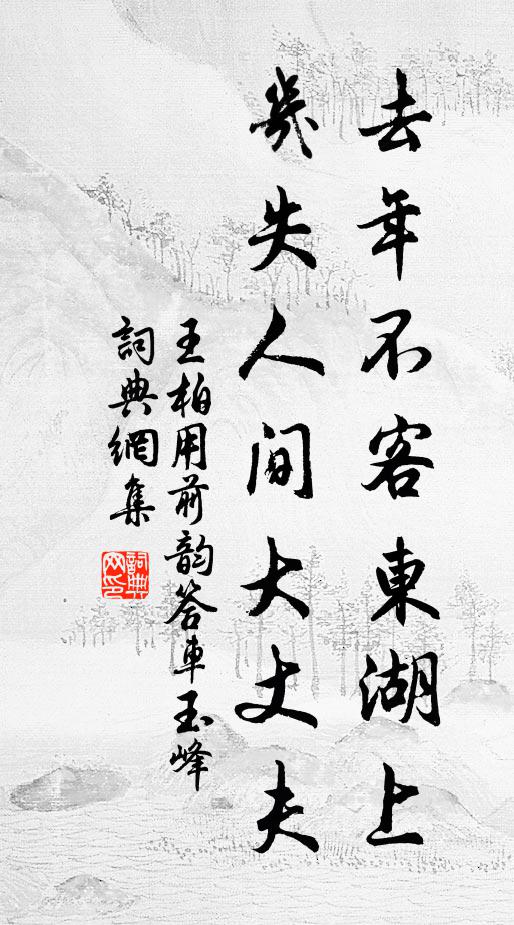 去年不客東湖上
幾失人間大丈夫
王柏用前韵答車玉峰
詞典網集
詞典網印